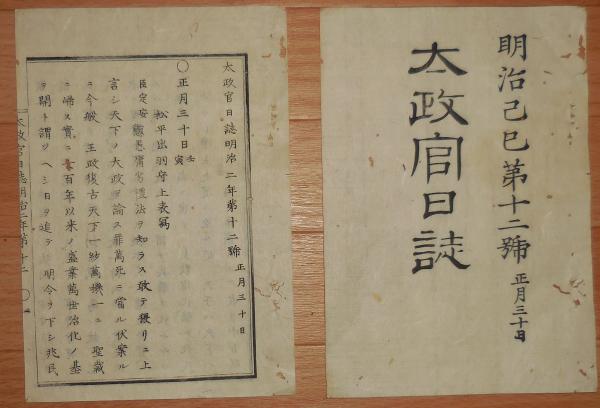 明治己巳第十二號 正月三十日
太政官日誌
太政官日誌明治二年第十二號 正月三十日
○正月三十日壬寅
松平出羽守上表寫
臣定安愚庸 禮法ヲ知ラス敢テ猥リニ上
言シ天下ノ大政ヲ論ス罪萬死ニ當ル伏案ル
ニ今般 王政復古天下一 萬機一ニ 聖裁
ニ歸ス實ニ 百年以来ノ盛業萬世治化ノ基
ヲ開ト謂ツヘシ日ヲ追テ 明令ヲ下シ兆民
太政官日誌明治二年第十二